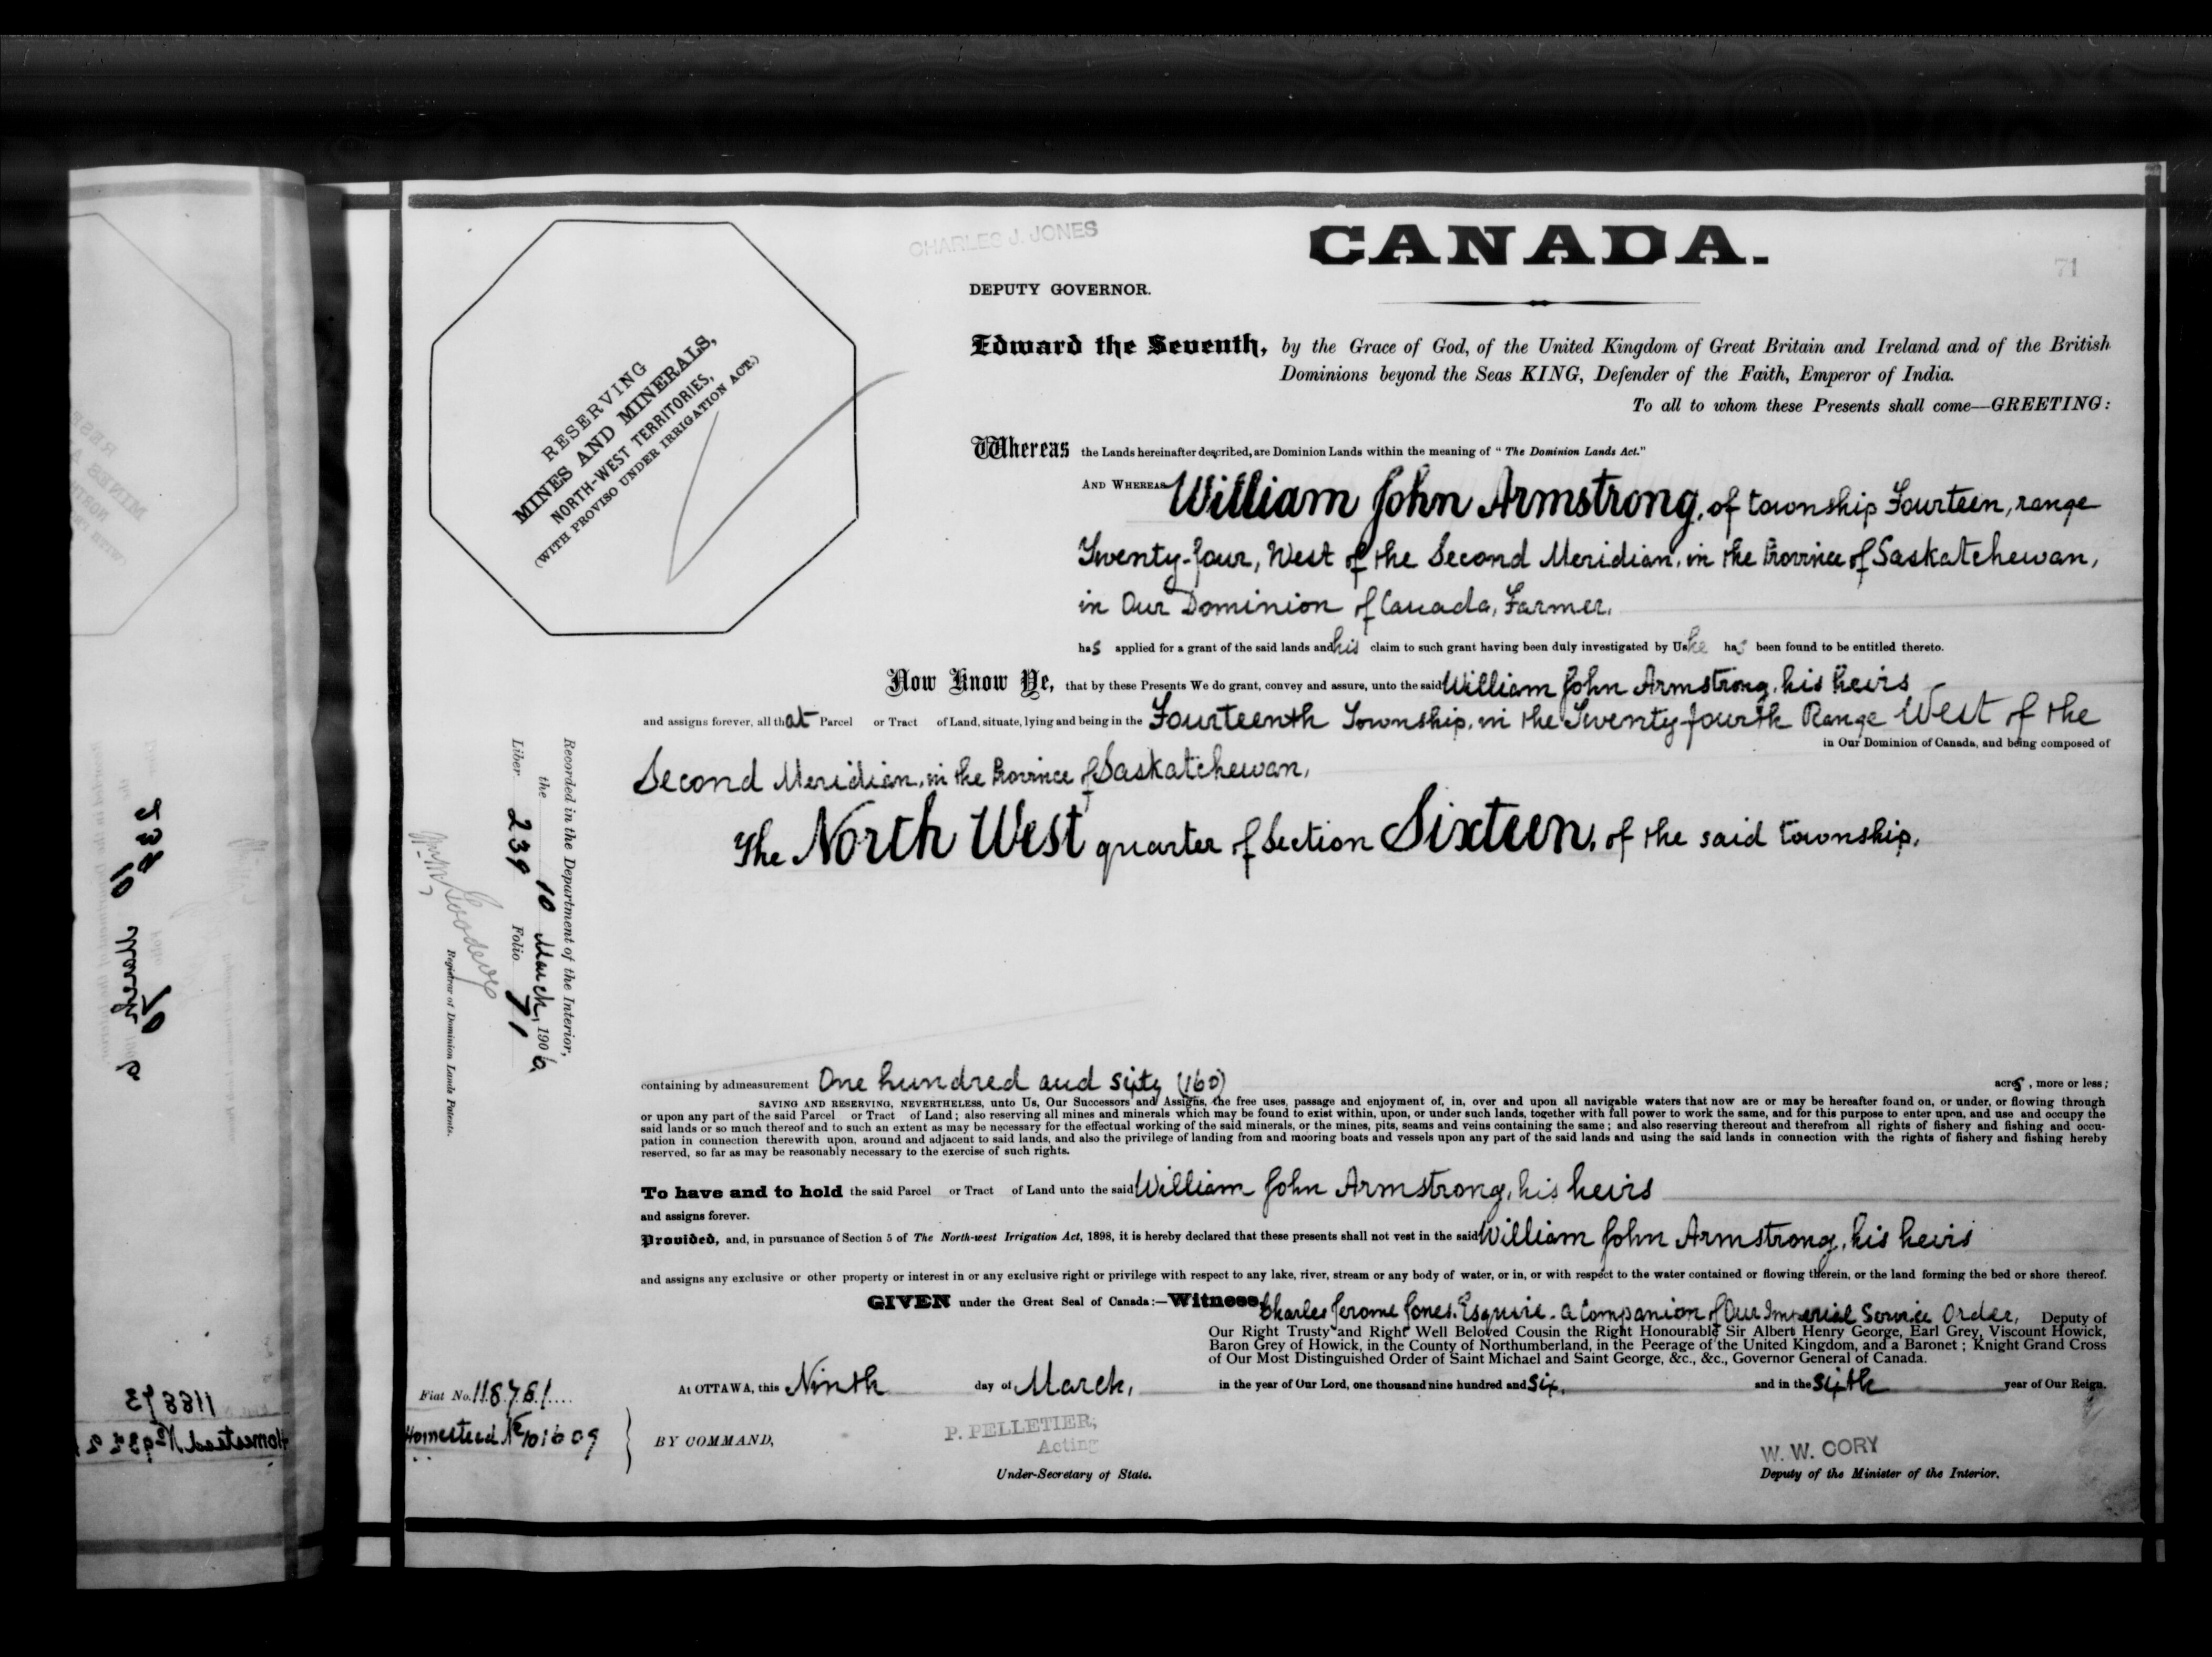 CHARLES J. JONES
CANADA.
71
DEPUTY GOVERNOR.
RESERVING
MINES AND MINERALS,
NORTH-WEST TERRITORIES,
(WITH PROVISO UNDER IRRIGATION ACT.)
Edward the Seventh, by the Grace of God, of the United Kingdom of Great Britain and Ireland and of the British
Dominions beyond the Seas KING, Defender of the Faith, Emperor of India.
To all to whom these Presents shall come—GREETING:
Whereas the Lands hereinafter described, are Dominion Lands within the meaning of "The Dominion Lands Act."
AND WHEREAS William John Armstrong, of township Fourteen, range
Twenty-four, West of the Second Meridian, in the Province of Saskatchewan,
in Our Dominion of Canada, Farmer,
has applied for a grant of the said lands and his claim to such grant having been duly investigated by Us he has been found to be entitled thereto.
Now Know Ye, that by these Presents We do grant, convey and assure, unto the said William John Armstrong, his heirs
and assigns forever, all that Parcel or Tract of Land, situate, lying and being in the Fourteenth Township, in the Twenty-fourth Range West of the
in Our Dominion of Canada, and being composed of
Second Meridian, in the Province of Saskatchewan,
The North West quarter of Section Sixteen, of the said township,
Recorded in the Department of the Interior,
the 10 March, 1906
Liber 239 Folio 71
Registrar of Dominion Lands Patents.
containing by admeasurement One hundred and sixty (160) acres, more or less;
SAVING AND RESERVING, NEVERTHELESS, unto Us, Our Successors and Assigns, the free uses, passage and enjoyment of, in, over and upon all navigable waters that now are or may be hereafter found on, or under, or flowing through
or upon any part of the said Parcel or Tract of Land; also reserving all mines and minerals which may be found to exist within, upon, or under such lands, together with full power to work the same, and for this purpose to enter upon, and use and occupy the
said lands or so much thereof and to such an extent as may be necessary for the effectual working of the said minerals, or the mines, pits, seams and veins containing the same; and also reserving thereout and therefrom all rights of fishery and fishing and occu-
pation in connection therewith upon, around and adjacent to said lands, and also the privilege of landing from and mooring boats and vessels upon any part of the said lands and using the said lands in connection with the rights of fishery and fishing hereby
reserved, so far as may be reasonably necessary to the exercise of such rights.
To have and to hold the said Parcel or Tract of Land unto the said William John Armstrong, his heirs
and assigns forever.
Provided, and, in pursuance of Section 5 of The North-west Irrigation Act, 1898, it is hereby declared that these presents shall not vest in the said William John Armstrong, his heirs
and assigns any exclusive or other property or interest in or any exclusive right or privilege with respect to any lake, river, stream or any body of water, or in, or with respect to the water contained or flowing therein, or the land forming the bed or shore thereof.
GIVEN under the Great Seal of Canada:—Witness, Charles Jerome Jones, Esquire, a Companion of Our Imperial Service Order, Deputy of
Our Right Trusty and Right Well Beloved Cousin the Right Honourable Sir Albert Henry George, Earl Grey, Viscount Howick,
Baron Grey of Howick, in the County of Northumberland, in the Peerage of the United Kingdom, and a Baronet; Knight Grand Cross
of Our Most Distinguished Order of Saint Michael and Saint George, &c., &c., Governor General of Canada.
At OTTAWA, this Ninth day of March, in the year of Our Lord, one thousand nine hundred and six, and in the sixth year of Our Reign.
Fiat No. 118761
Homestead No 101609
BY COMMAND,
P. PELLETIER,
Acting
Under-Secretary of State.
W. W. CORY
Deputy of the Minister of the Interior.